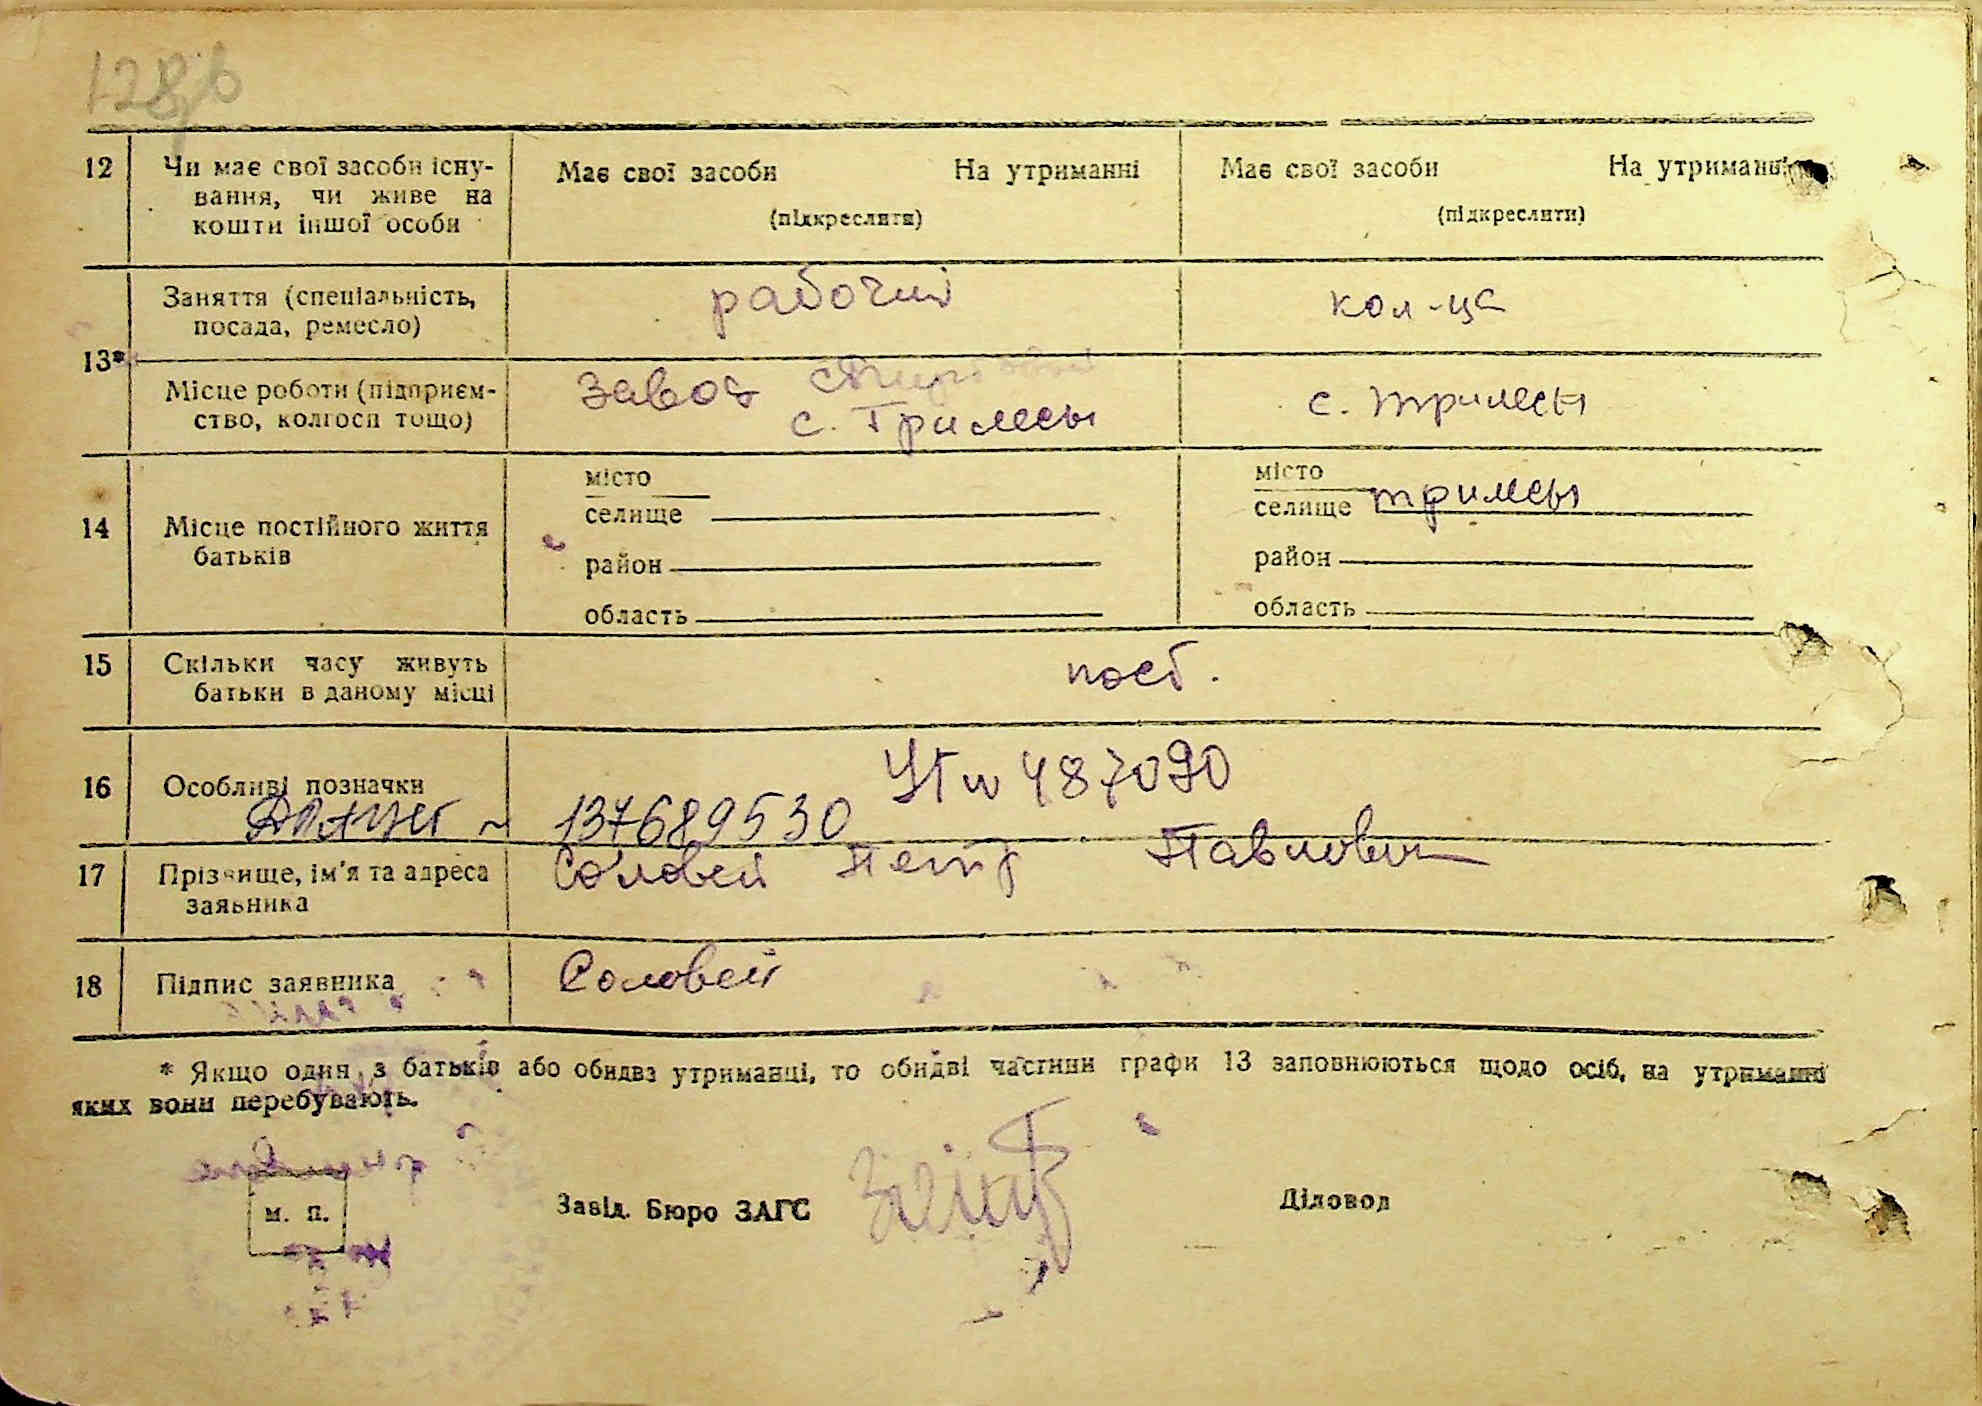 128
12 Чи має свої засоби існу-
вання, чи живе на
кошти іншої особи
Має свої засоби На утриманні
(підкреслити)
Має свої засоби На утриманні
(підкреслити)
13*
Заняття (спеціальність,
посада, ремесло)
рабочий
кол-ца
Місце роботи (підприєм-
ство, колгосп тощо)
завод
с. Тримесы
с. Тримесы
14 Місце постійного життя
батьків
місто
селище
район
область
місто
селище Тримесы
район
область
15 Скільки часу живуть
батьки в даному місці
пост.
16 Особливі позначки
487090
137689530
17 Прізвище, ім'я та адреса
заявника
Соловей Петр Павлович
18 Підпис заявника
Соловей
* Якщо один з батьків або обидва утриманці, то обидві частини графи 13 заповнюються щодо осіб, на утриманні
яких вони перебувають.
м. п.
Завід. Бюро ЗАГС
Діловод